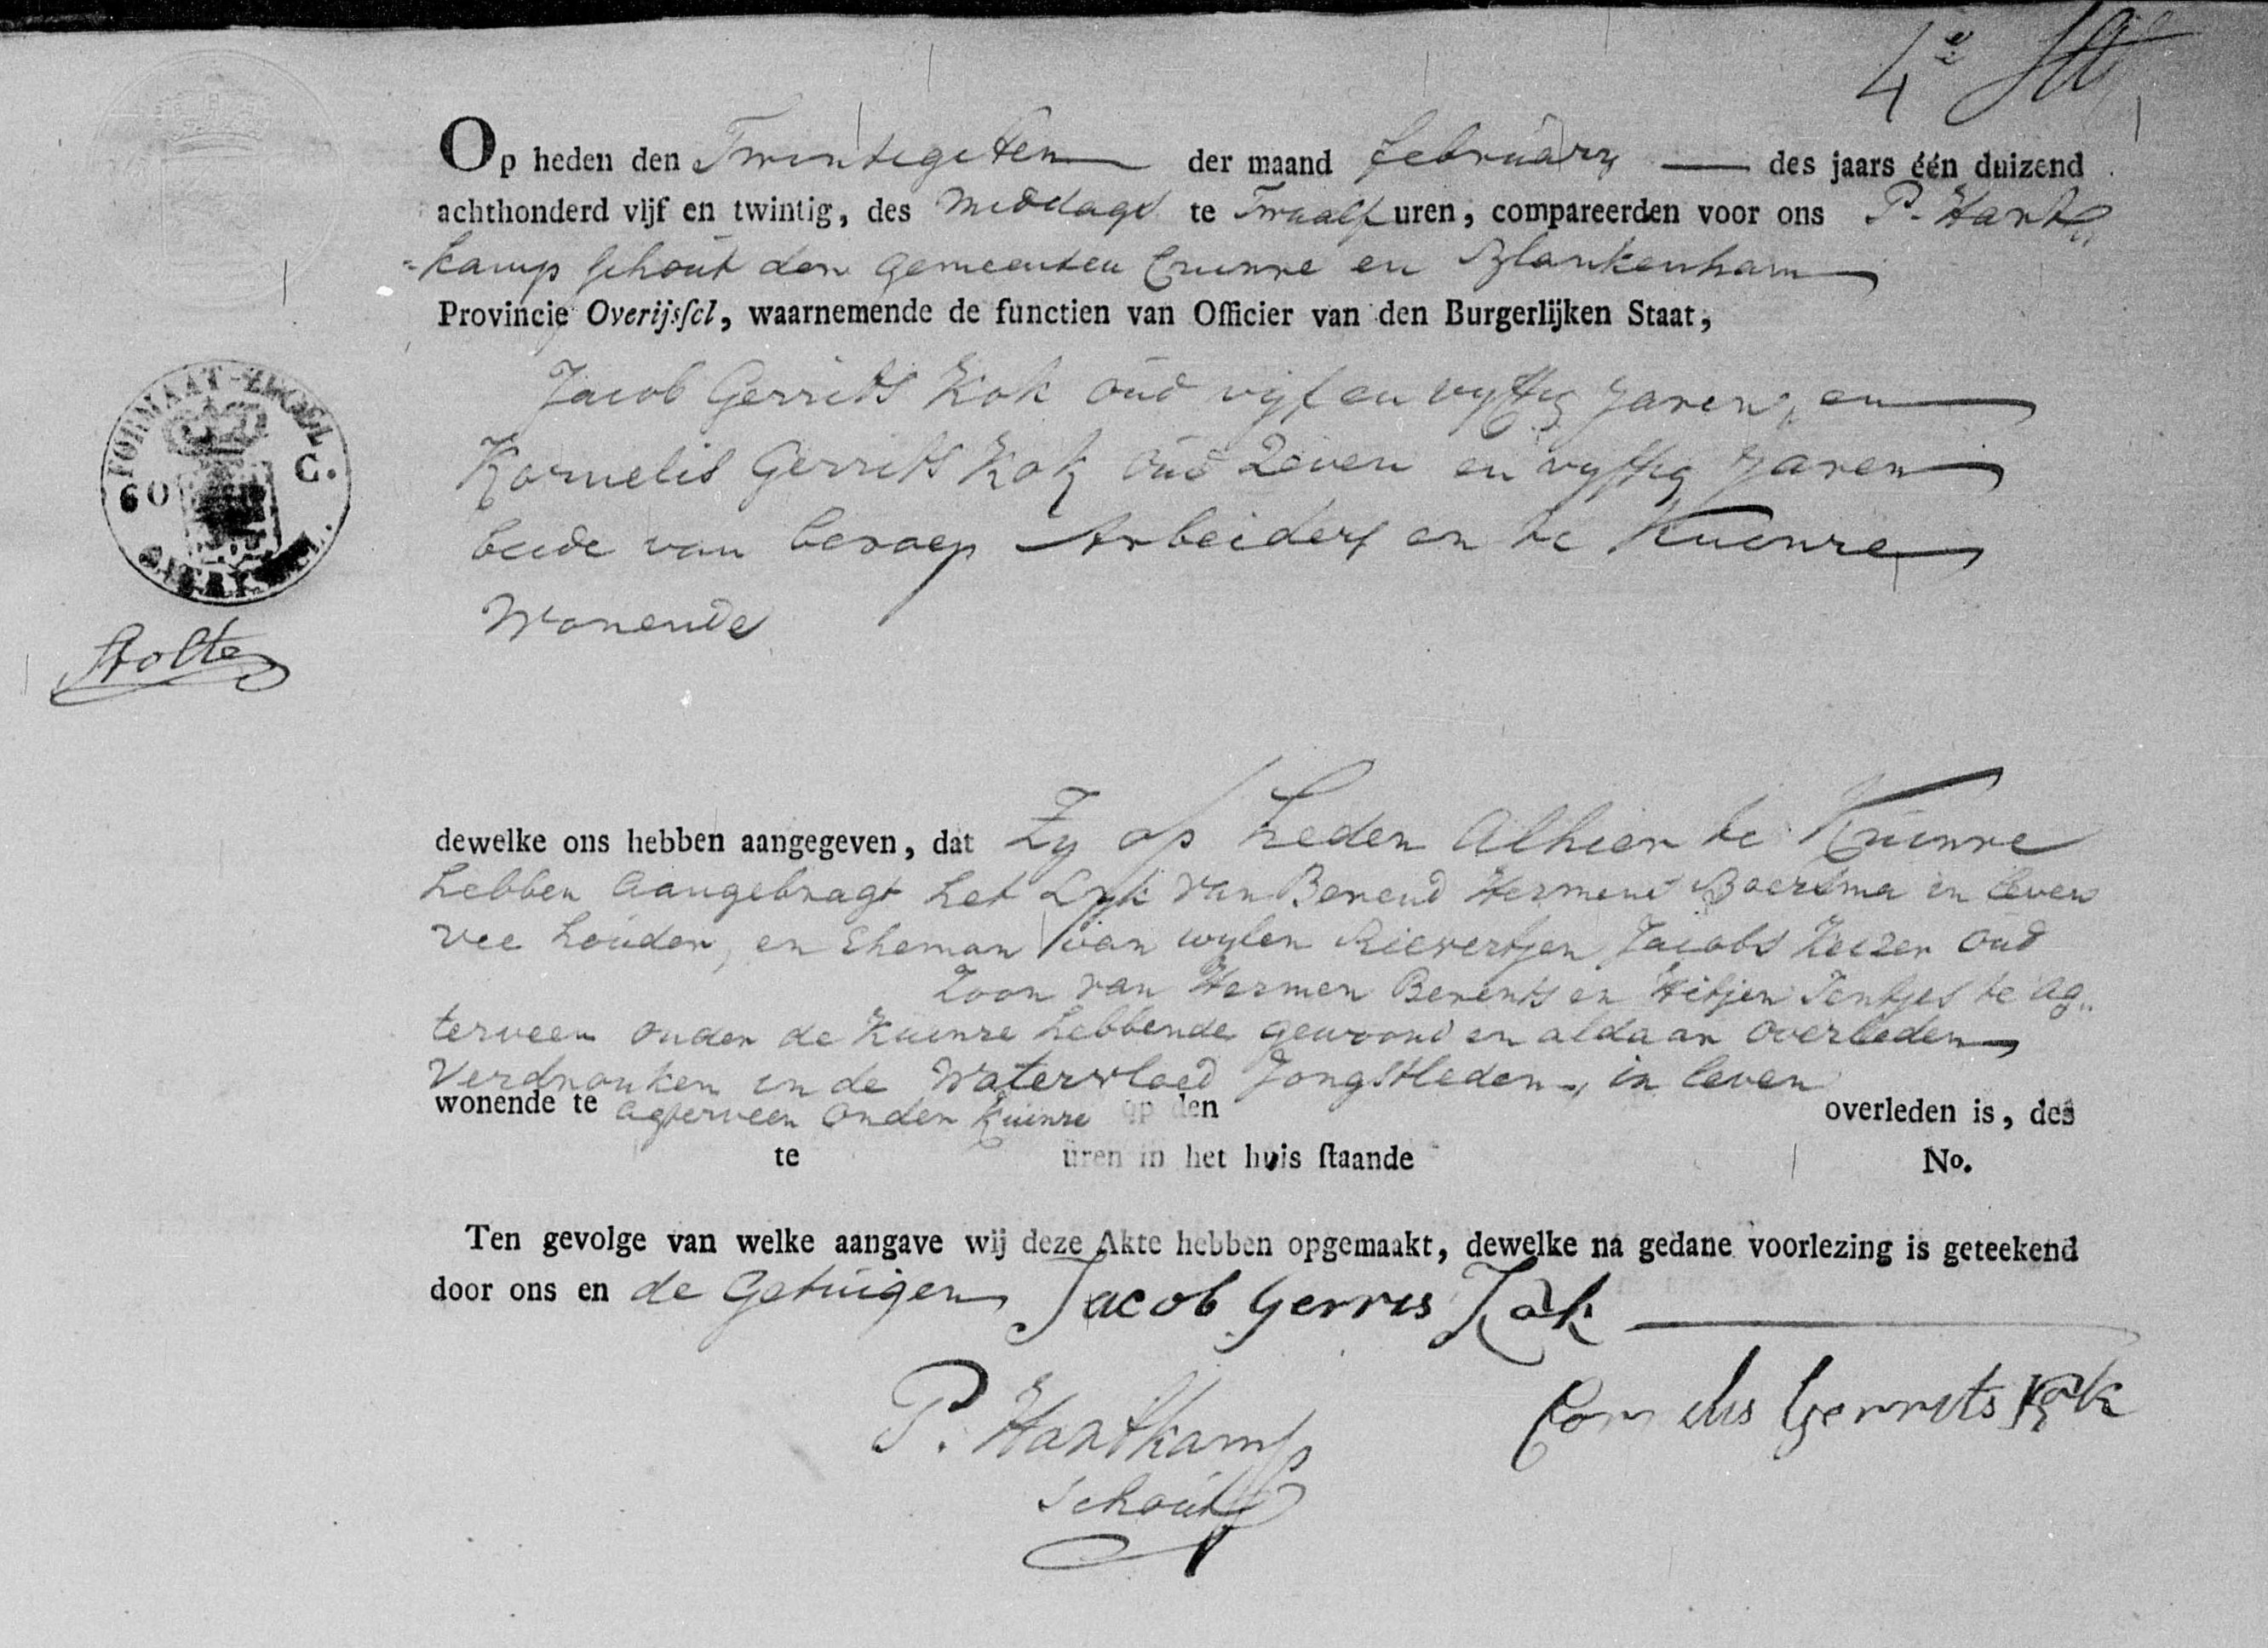 4e
Op heden den Twintigsten der maand february des jaars één duizend
achthonderd vijf en twintig, des Middags te Twaalf uren, compareerden voor ons P. Hart
=kamp schout der gemeenten Cuinre en Blankenham
Provincie Overijssel, waarnemende de functien van Officier van den Burgerlijken Staat,
Jacob Gerrits Kok oud vijf en vyftig Jaren, en
Kornelis Gerrits Kok oud Zeven en vyftig Jaren
beide van beroep Arbeiders en te Kuinre
Wonende
FORMAAT-ZEGEL
60 C.
OVERYSSEL.
Stolte
dewelke ons hebben aangegeven, dat Zy op heden Alhier te Kuinre
hebben Aangebragt het Lyk van Berend Hermens Boersma in leven
vee houder, en Eheman van wylen Sieuwertjen Jacobs Keizer oud
Zoon van Hermen Berents en Hitjen Jentjes te Ag„
terveen onder de Kuinre hebbende gewoond en aldaar overleden
Verdronken in de Watervloed Jongstleden, in leven
wonende te Agterveen Onder Kuinre op den overleden is, des
te uren in het huis staande No.
Ten gevolge van welke aangave wij deze Akte hebben opgemaakt, dewelke na gedane voorlezing is geteekend
door ons en de Getuigen Jacob Gerris Kok
P. Hartkamp
Schout
Cornelis Gerrits Kok